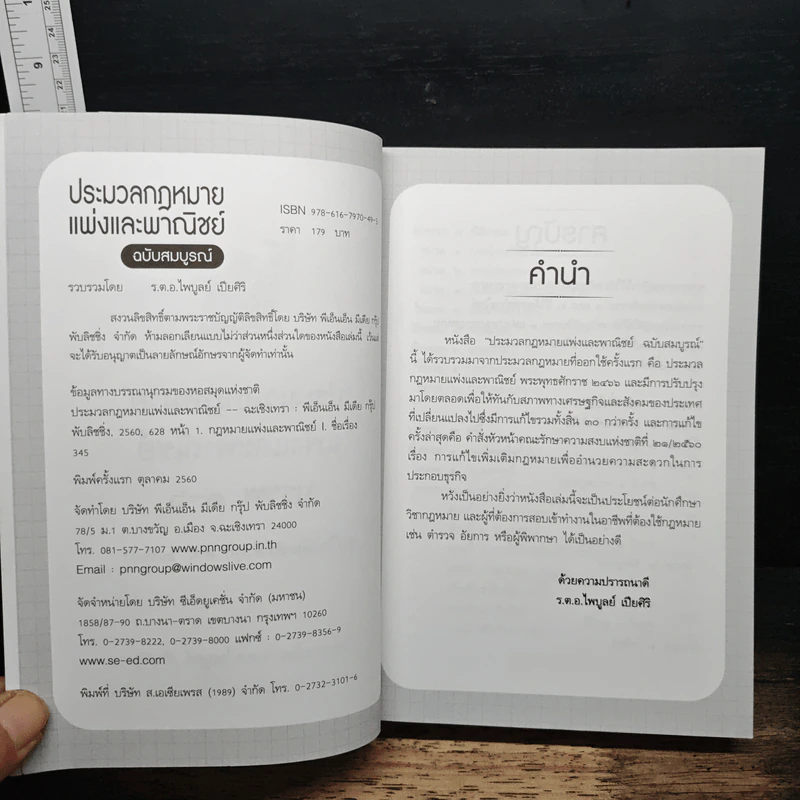 ประมวลกฎหมาย
แพ่งและพาณิชย์
ฉบับสมบูรณ์
ISBN 978-616-7970-49-
ราคา 179 บาท
รวบรวมโดย ร.ต.อ.ไพบูลย์ เปียศิริ
สงวนลิขสิทธิ์ตามพระราชบัญญัติลิขสิทธิ์โดย บริษัท พีเอ็นเอ็น มีเดีย กรุ๊ป
พับลิชชิ่ง จำกัด ห้ามลอกเลียนแบบไม่ว่าส่วนหนึ่งส่วนใดของหนังสือเล่มนี้ เว้นแต่
จะได้รับอนุญาตเป็นลายลักษณ์อักษรจากผู้จัดทำเท่านั้น
ข้อมูลทางบรรณานุกรมของหอสมุดแห่งชาติ
ประมวลกฎหมายแพ่งและพาณิชย์ -- ฉะเชิงเทรา : พีเอ็นเอ็น มีเดีย กรุ๊ป
พับลิชชิ่ง, 2560, 628 หน้า 1. กฎหมายแพ่งและพาณิชย์ I. ชื่อเรื่อง
345
พิมพ์ครั้งแรก ตุลาคม 2560
จัดทำโดย บริษัท พีเอ็นเอ็น มีเดีย กรุ๊ป พับลิชชิ่ง จำกัด
78/5 ม.1 ต.บางขวัญ อ.เมือง จ.ฉะเชิงเทรา 24000
โทร. 081-577-7107 www.pnngroup.in.th
Email : pnngroup@windowslive.com
จัดจำหน่ายโดย บริษัท ซีเอ็ดยูเคชั่น จำกัด (มหาชน)
1858/87-90 ถ.บางนา-ตราด เขตบางนา กรุงเทพฯ 10260
โทร. 0-2739-8222, 0-2739-8000 แฟกซ์ : 0-2739-8356-9
www.se-ed.com
พิมพ์ที่ บริษัท ส.เอเซียเพรส (1989) จำกัด โทร. 0-2732-3101-6
คำนำ
หนังสือ "ประมวลกฎหมายแพ่งและพาณิชย์ ฉบับสมบูรณ์"
นี้ ได้รวบรวมมาจากประมวลกฎหมายที่ออกใช้ครั้งแรก คือ ประมวล
กฎหมายแพ่งและพาณิชย์ พระพุทธศักราช ๒๔๖๖ และมีการปรับปรุง
มาโดยตลอดเพื่อให้ทันกับสภาพทางเศรษฐกิจและสังคมของประเทศ
ที่เปลี่ยนแปลงไปซึ่งมีการแก้ไขรวมทั้งสิ้น ๓๐ กว่าครั้ง และการแก้ไข
ครั้งล่าสุดคือ คำสั่งหัวหน้าคณะรักษาความสงบแห่งชาติที่ ๒๑/๒๕๖๐
เรื่อง การแก้ไขเพิ่มเติมกฎหมายเพื่ออำนวยความสะดวกในการ
ประกอบธุรกิจ
หวังเป็นอย่างยิ่งว่าหนังสือเล่มนี้จะเป็นประโยชน์ต่อนักศึกษา
วิชากฎหมาย และผู้ที่ต้องการสอบเข้าทำงานในอาชีพที่ต้องใช้กฎหมาย
เช่น ตำรวจ อัยการ หรือผู้พิพากษา ได้เป็นอย่างดี
ด้วยความปรารถนาดี
ร.ต.อ.ไพบูลย์ เปียศิริ